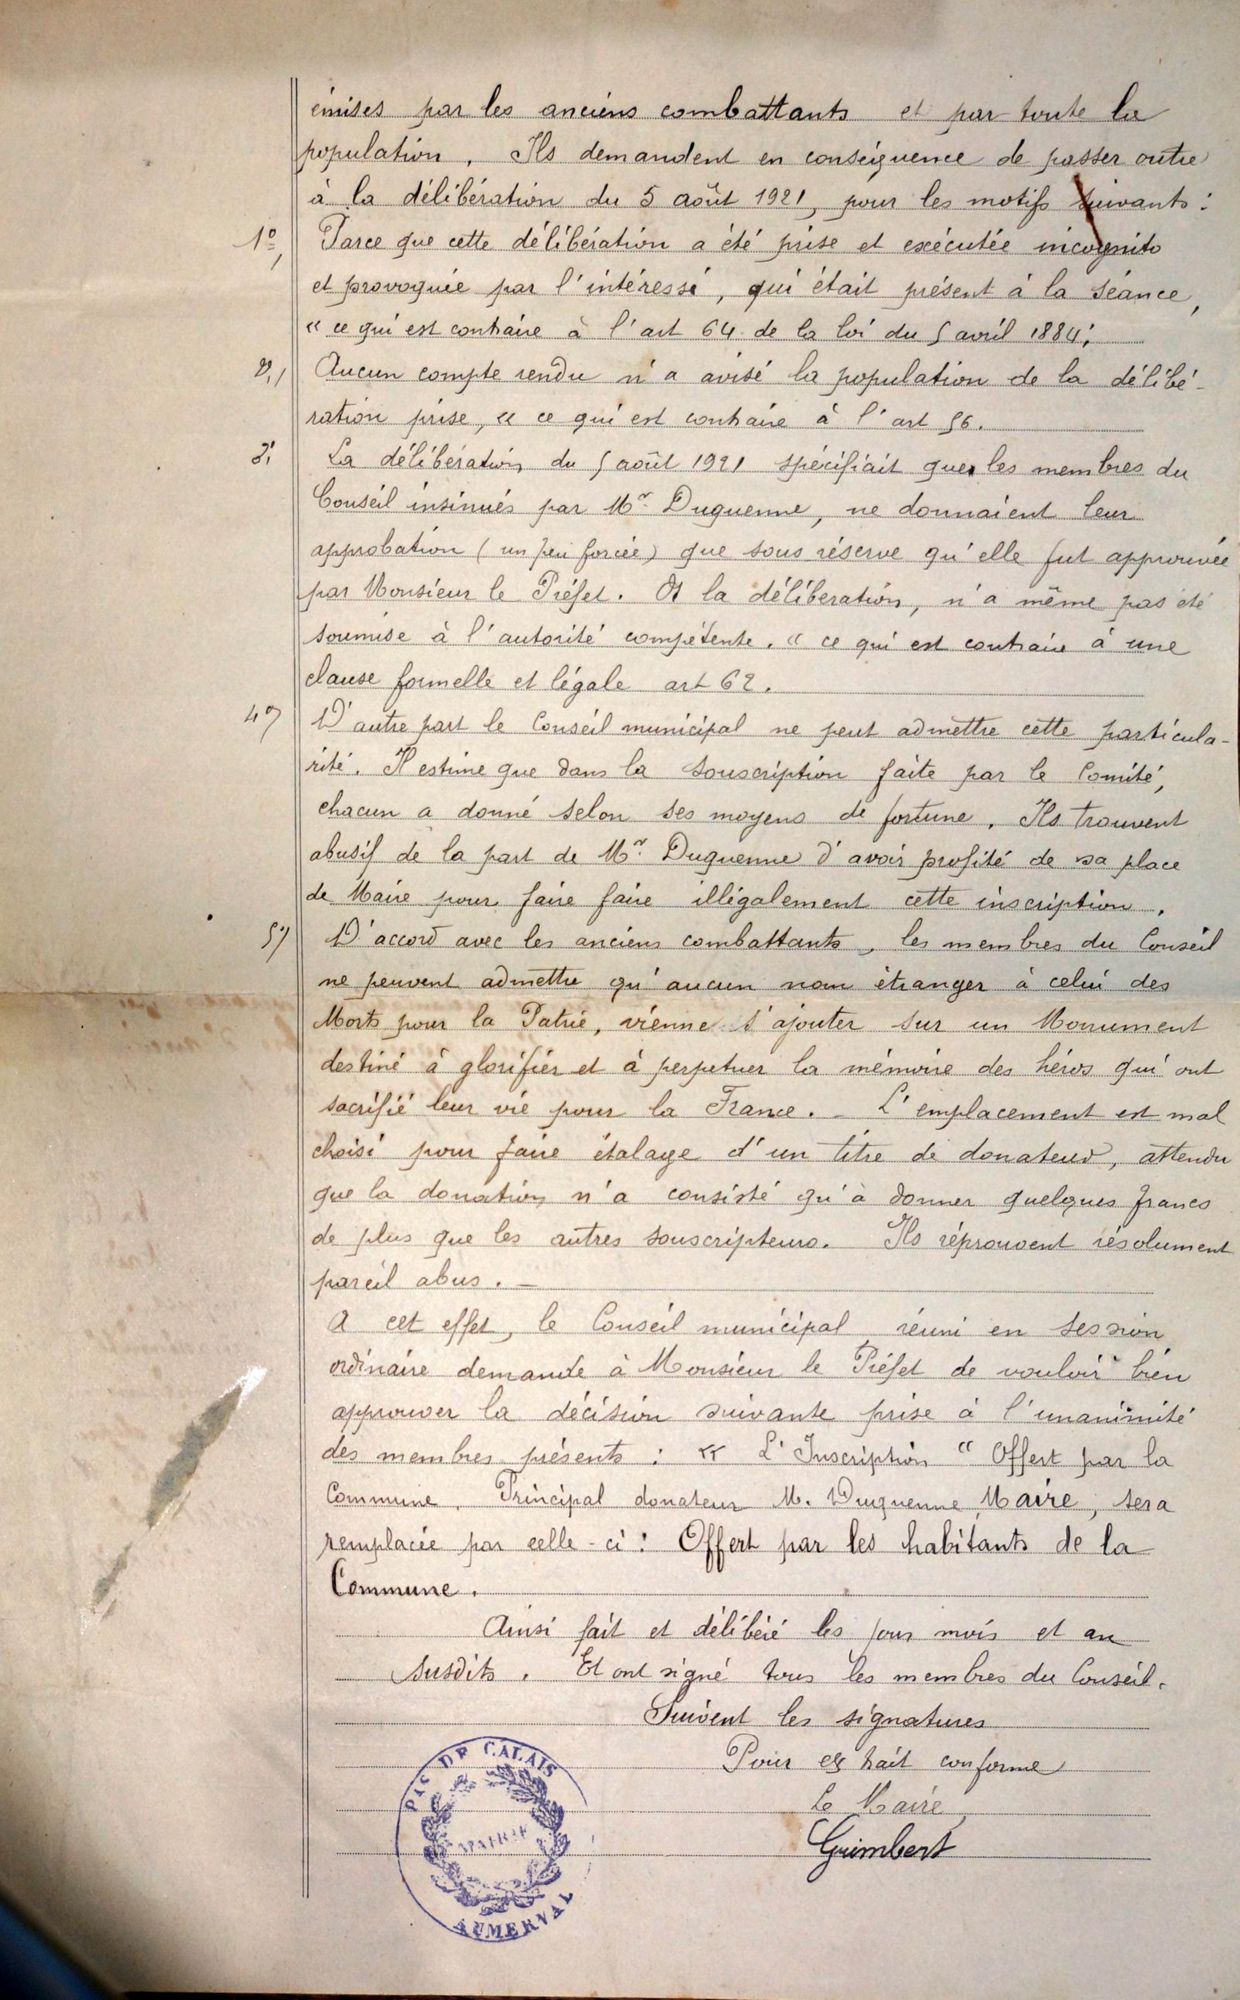 émises par les anciens combattants et par toute la
population. Ils demandent en conséquence de passer outre
à la délibération du 5 août 1921, pour les motifs suivants :
1º, Parce que cette délibération a été prise et exécutée incognito
et provoquée par l'intéressé, qui était présent à la séance,
« ce qui est contraire à l'art 64 de la loi du 5 avril 1884;
2, Aucun compte rendu n'a avisé la population de la délibé-
ration prise, « ce qui est contraire à l'art 56.
3, La délibération du 5 août 1921 spécifiait que les membres du
Conseil insinués par Mr Duquenne, ne donnaient leur
approbation (un peu forcée) que sous réserve qu'elle fut approuvée
par Monsieur le Préfet. Et la délibération, n'a même pas été
soumise à l'autorité compétente. « ce qui est contraire à une
clause formelle et légale art 62.
4º) D'autre part le Conseil municipal ne peut admettre cette particula-
rité. Il estime que dans la souscription faite par le Comité,
chacun a donné selon ses moyens de fortune. Ils trouvent
abusif de la part de Mr Duquenne d'avoir profité de sa place
de Maire pour faire faire illégalement cette inscription.
5º) D'accord avec les anciens combattants, les membres du Conseil
ne peuvent admettre qu'aucun nom étranger à celui des
Morts pour la Patrie, vienne s'ajouter sur un Monument
destiné à glorifier et à perpetuer la mémoire des héros qui ont
sacrifié leur vie pour la France. - L'emplacement est mal
choisi pour faire étalage d'un titre de donateur, attendu
que la donation n'a consisté qu'à donner quelques francs
de plus que les autres souscripteurs. Ils réprouvent résolument
pareil abus. -
A cet effet, le Conseil municipal réuni en session
ordinaire demande à Monsieur le Préfet de vouloir bien
approuver la décision suivante prise à l'unanimité
des membres présents : « L'Inscription " Offert par la
Commune. Principal donateur M. Duquenne Maire, sera
remplacée par celle-ci : Offert par les habitants de la
Commune.
Ainsi fait et délibéré les jour mois et an
susdits. Et ont signé tous les membres du Conseil.
Suivent les signatures
Pour extrait conforme
Le Maire,
Guimbert
PAS DE CALAIS
PATRIE
AUMERVAL